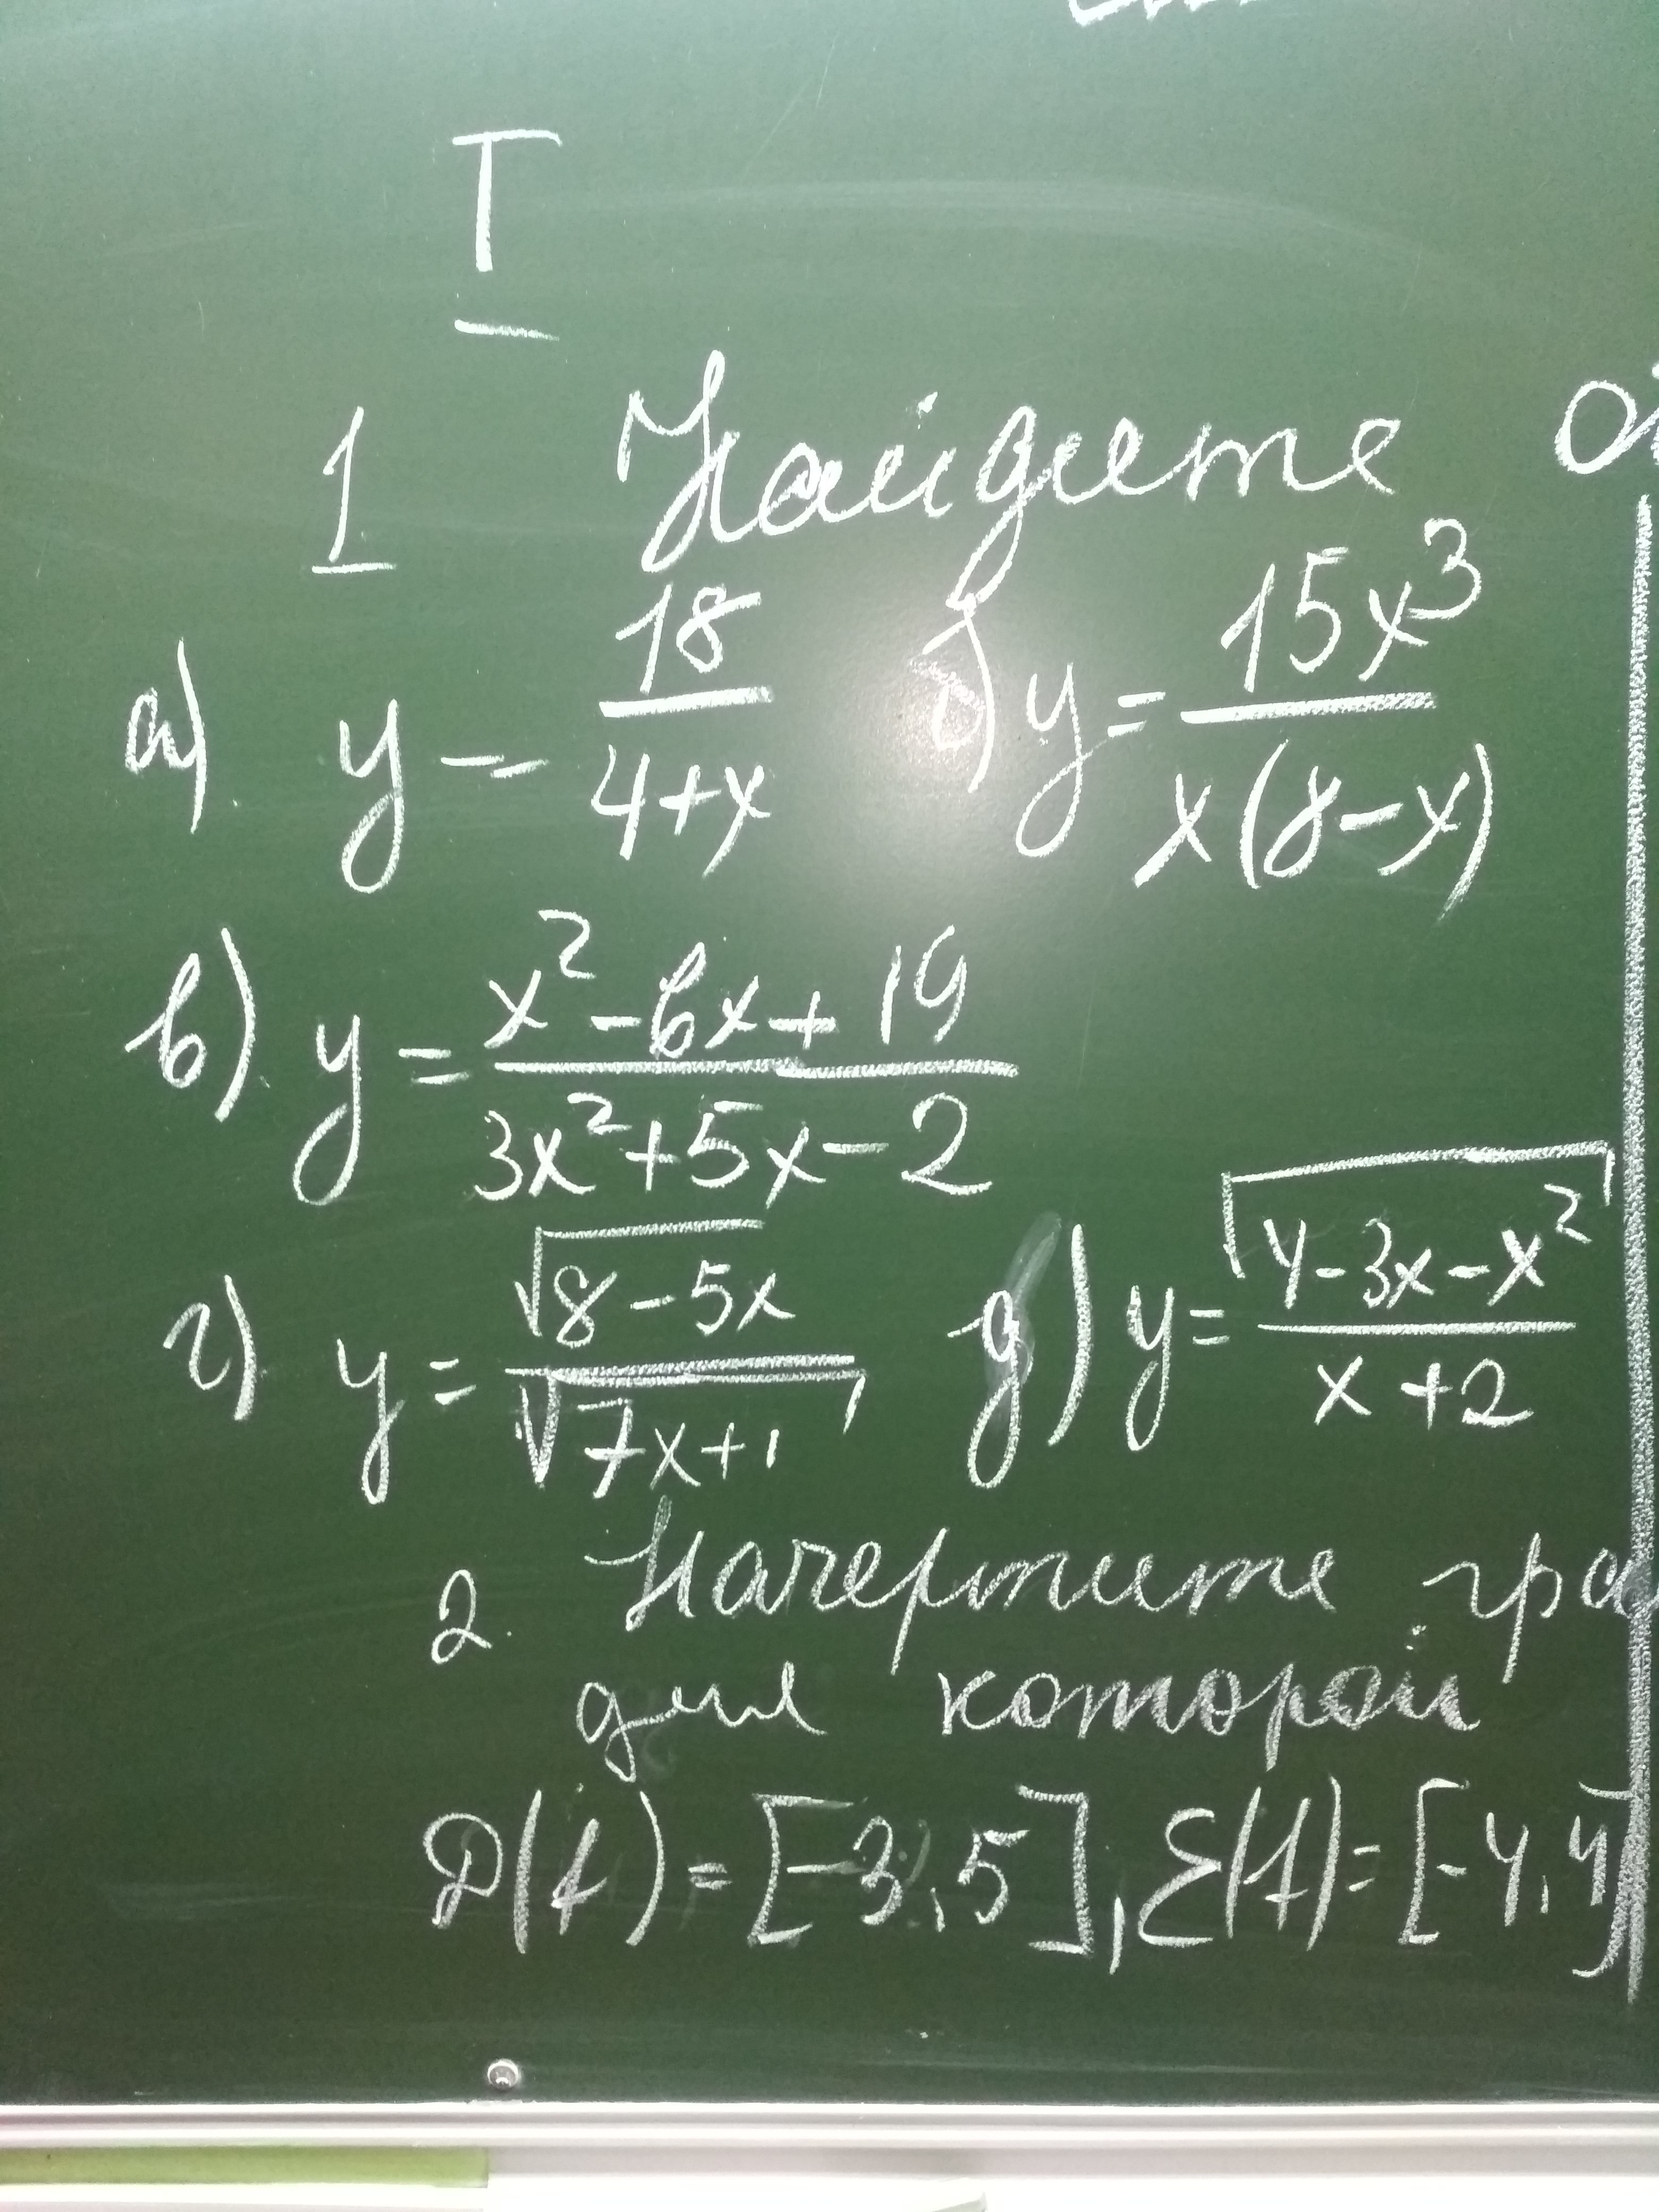 I
1 Найдите
а) y = 18/(4+x) б) y = 15x³/(x(8-x))
в) y = (x² - 6x + 19)/(3x² + 5x - 2)
г) y = √(8 - 5x)/√(7x+1) д) y = √(4 - 3x - x²)/(x + 2)
2. Начертите гра
для которой
D(f) = [-3,5], E(f) = [-4,4]